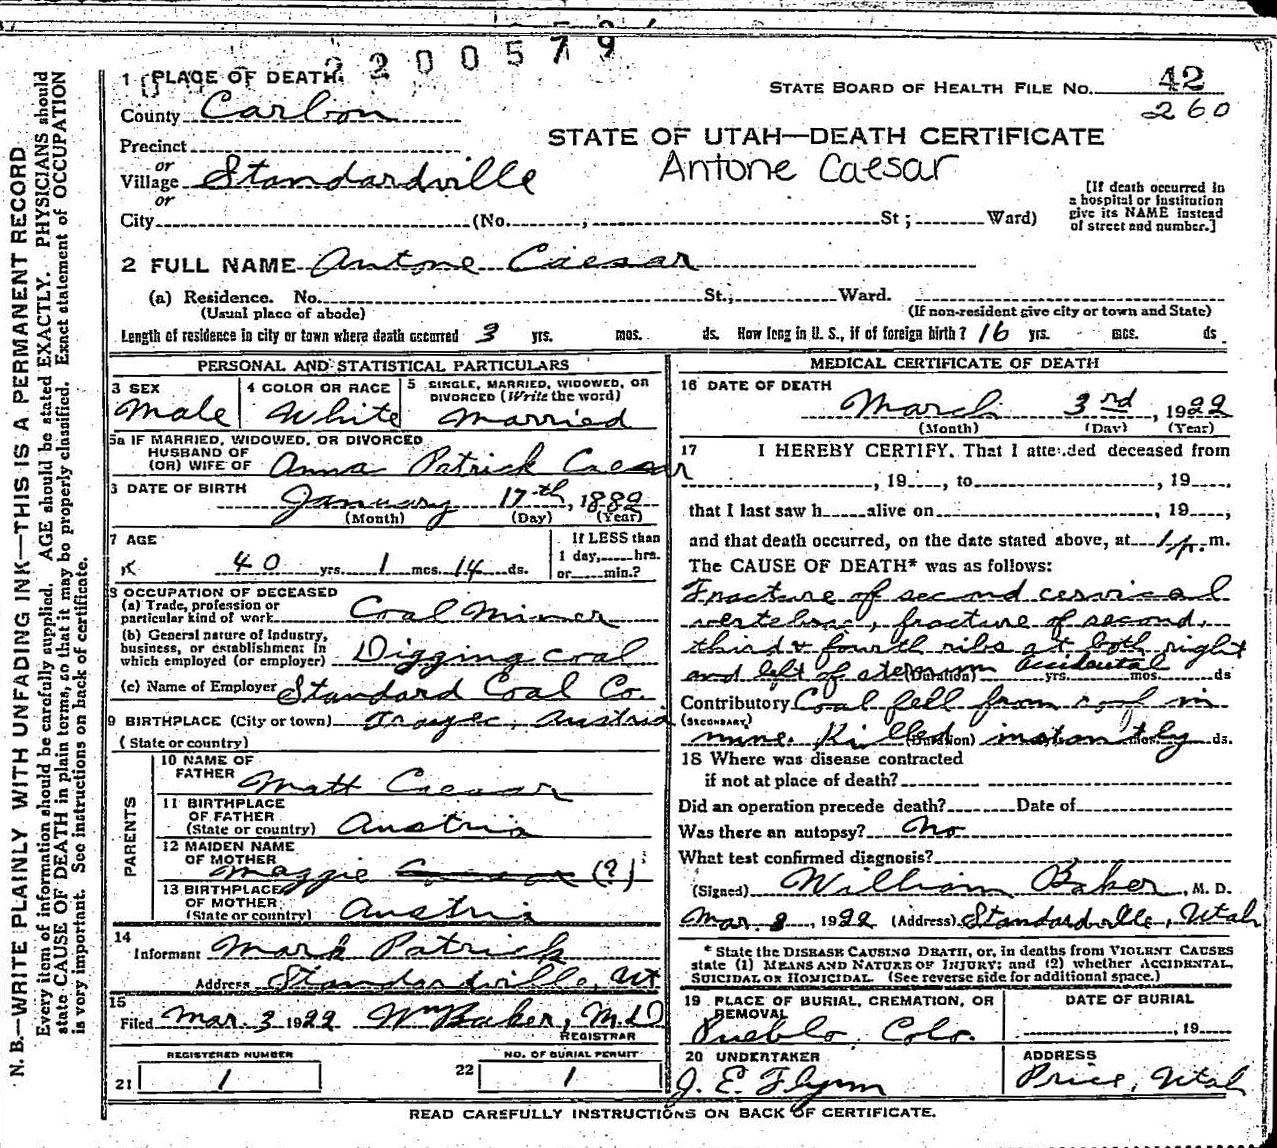 2200579
1 PLACE OF DEATH.
STATE BOARD OF HEALTH FILE NO. 42
260
County Carbon
STATE OF UTAH—DEATH CERTIFICATE
Precinct
Antone Caesar
or
Village Standardville
or
[If death occurred in a hospital or institution give its NAME instead of street and number.]
City (No. ; St ; Ward)
2 FULL NAME Antone Caesar
(a) Residence. No. St., Ward.
(Usual place of abode) (If non-resident give city or town and State)
Length of residence in city or town where death occurred 3 yrs. mos. ds. How long in U. S., if of foreign birth? 16 yrs. mos. ds
PERSONAL AND STATISTICAL PARTICULARS
3 SEX Male
4 COLOR OR RACE White
5 SINGLE, MARRIED, WIDOWED, OR DIVORCED (Write the word) Married
5a IF MARRIED, WIDOWED, OR DIVORCED
HUSBAND OF
(OR) WIFE OF Anna Patrick Caesar
DATE OF BIRTH January 17th, 1882
(Month) (Day) (Year)
7 AGE 40 yrs. 1 mos. 14 ds.
If LESS than
1 day, hrs.
or min.?
8 OCCUPATION OF DECEASED
(a) Trade, profession or
particular kind of work Coal Miner
(b) General nature of Industry,
business, or establishment in
which employed (or employer) Digging coal
(c) Name of Employer Standard Coal Co.
9 BIRTHPLACE (City or town) Austria
(State or country)
PARENTS
10 NAME OF
FATHER Matt Caesar
11 BIRTHPLACE
OF FATHER
(State or country) Austria
12 MAIDEN NAME
OF MOTHER
Maggie (?)
13 BIRTHPLACE
OF MOTHER
(State or country) Austria
14
Informant Mark Patrick
Address Standardville, Ut
15
Filed Mar. 3 1922 Wm Baker, M.D
REGISTRAR
REGISTERED NUMBER
21 1
NO. OF BURIAL PERMIT
22 1
MEDICAL CERTIFICATE OF DEATH
16 DATE OF DEATH
March 3rd, 1922
(Month) (Day) (Year)
17 I HEREBY CERTIFY, That I attended deceased from
, 19 , to , 19 ,
that I last saw h alive on , 19 ,
and that death occurred, on the date stated above, at 1 p. m.
The CAUSE OF DEATH* was as follows:
Fracture of second cervical
vertebrae, fracture of second,
third & fourth ribs at both right
and left of sternum Accidental
(Duration) yrs. mos. ds
Contributory Coal fell from roof in
(SECONDARY)
mine. Killed instantly
(Duration) yrs. mos. ds.
18 Where was disease contracted
if not at place of death?
Did an operation precede death? Date of
Was there an autopsy? No
What test confirmed diagnosis?
(Signed) William Baker, M. D.
Mar 3, 1922 (Address) Standardville, Utah
* State the DISEASE CAUSING DEATH, or, in deaths from VIOLENT CAUSES
state (1) MEANS AND NATURE OF INJURY; and (2) whether ACCIDENTAL,
SUICIDAL OR HOMICIDAL. (See reverse side for additional space.)
19 PLACE OF BURIAL, CREMATION, OR
REMOVAL
Pueblo, Colo.
DATE OF BURIAL
, 19
20 UNDERTAKER
J. E. Flynn
ADDRESS
Price, Utah
READ CAREFULLY INSTRUCTIONS ON BACK OF CERTIFICATE.
N. B.—WRITE PLAINLY WITH UNFADING INK—THIS IS A PERMANENT RECORD
Every item of information should be carefully supplied. AGE should be stated EXACTLY. PHYSICIANS should
state CAUSE OF DEATH in plain terms, so that it may be properly classified. Exact statement of OCCUPATION
is very important. See instructions on back of certificate.